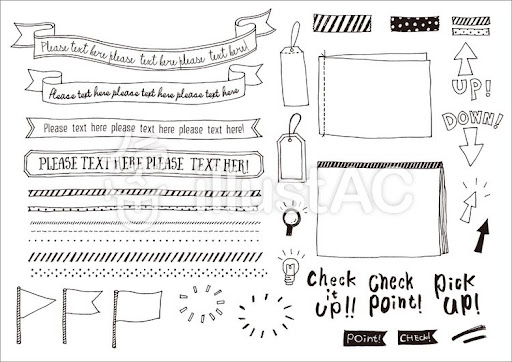 Please text here please text here please text here
Please text here please text here please text here
Please text here please text here please text here!
PLEASE TEXT HERE PLEASE TEXT HERE!
UP!
DOWN!
illustAC
Check it up!!
Check point!
Pick up!
POINT!
CHECK!